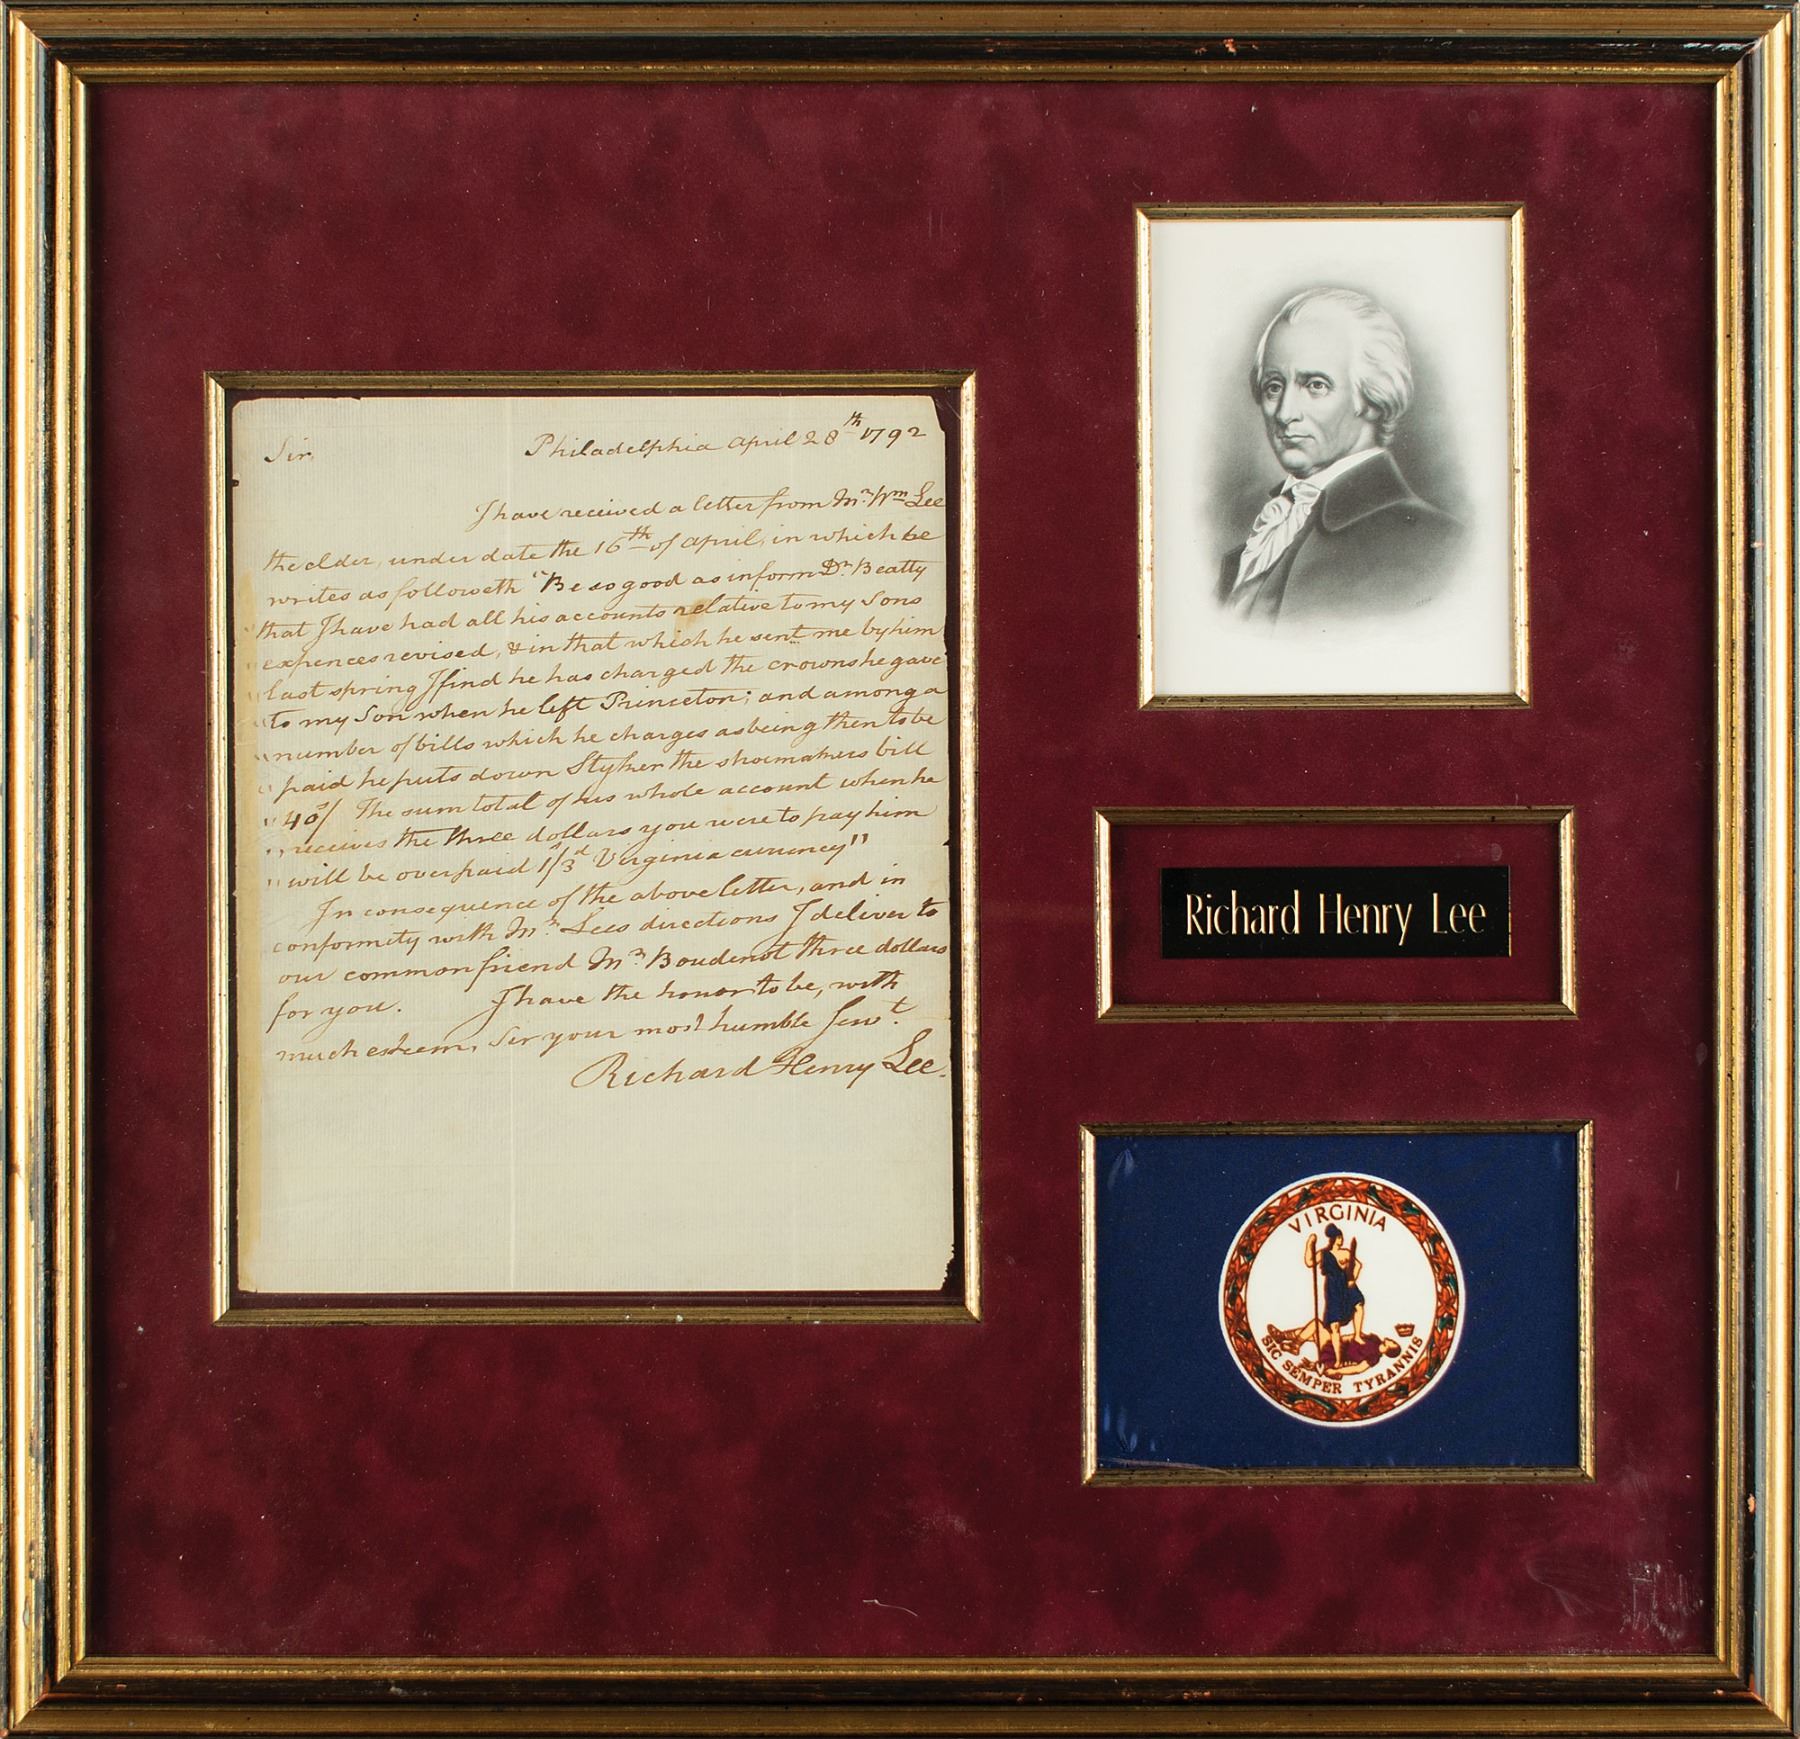 Sir, Philadelphia April 28th 1792
I have received a letter from Mr. Wm Lee
the elder, under date the 16th of April, in which he
writes as followeth "Be so good as inform Dr. Beatty
that I have had all his accounts relative to my Sons
"expences revised, & in that which he sent me by him
"last spring I find he has charged the crowns he gave
"to my Son when he left Princeton; and among a
"number of bills which he charges as being then to be
"paid he puts down Stryker the shoemakers bill
"40s/ The sum total of his whole account when he
"receives the three dollars you were to pay him
"will be overpaid 1s/3d Virginia currency"
In consequence of the above letter, and in
conformity with Mr. Lees directions I deliver to
our common friend Mr. Boudenot three dollars
for you. I have the honor to be, with
much esteem, Sir your most humble Servt.
Richard Henry Lee.
Richard Henry Lee
VIRGINIA
SIC SEMPER TYRANNIS